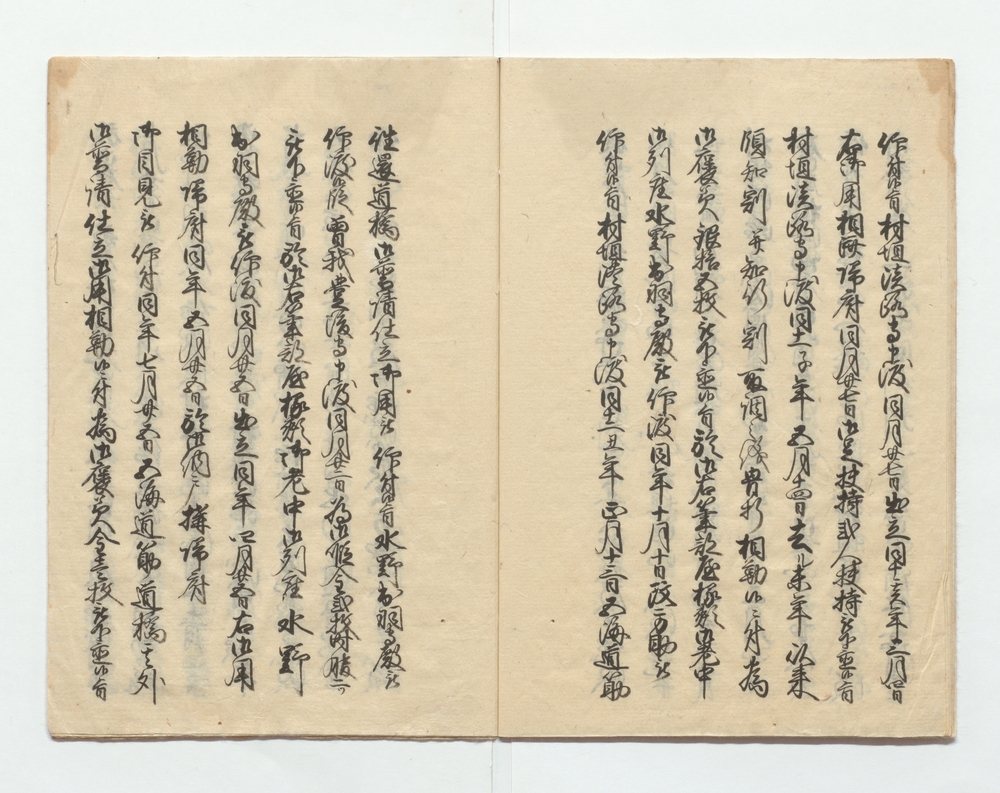 仰付候旨村垣淡路守申渡同月廿七日出立同十亥年三月四日
右御用相済帰府同月廿七日御足扶持弐人扶持被下置候旨
村垣淡路守申渡同十一子年五月十四日去ル未年以来
領知割并知行割取調之儀骨折相勤候ニ付為
御褒美銀拾五枚被下置候旨於御右筆部屋縁頬御老中
御列座水野出羽守殿被仰渡同年十月十日改方助被
仰付候旨村垣淡路守申渡同十二丑年正月十三日五海道筋
往還道橋御普請仕立御用被仰付候旨水野出羽守殿被
仰渡候段曽我豊後守申渡同月廿二日為御暇金弐枚時服二ツ
被下置候旨於御右筆部屋縁頬御老中御列座水野
出羽守殿被仰渡同月廿五日出立同年四月廿五日右御用
相勤帰府同年五月廿五日於御納戸構帰府
御目見被仰付同年七月廿五日五海道筋道橋其外
御普請仕立御用相勤候ニ付為御褒美金壱枚被下置候旨